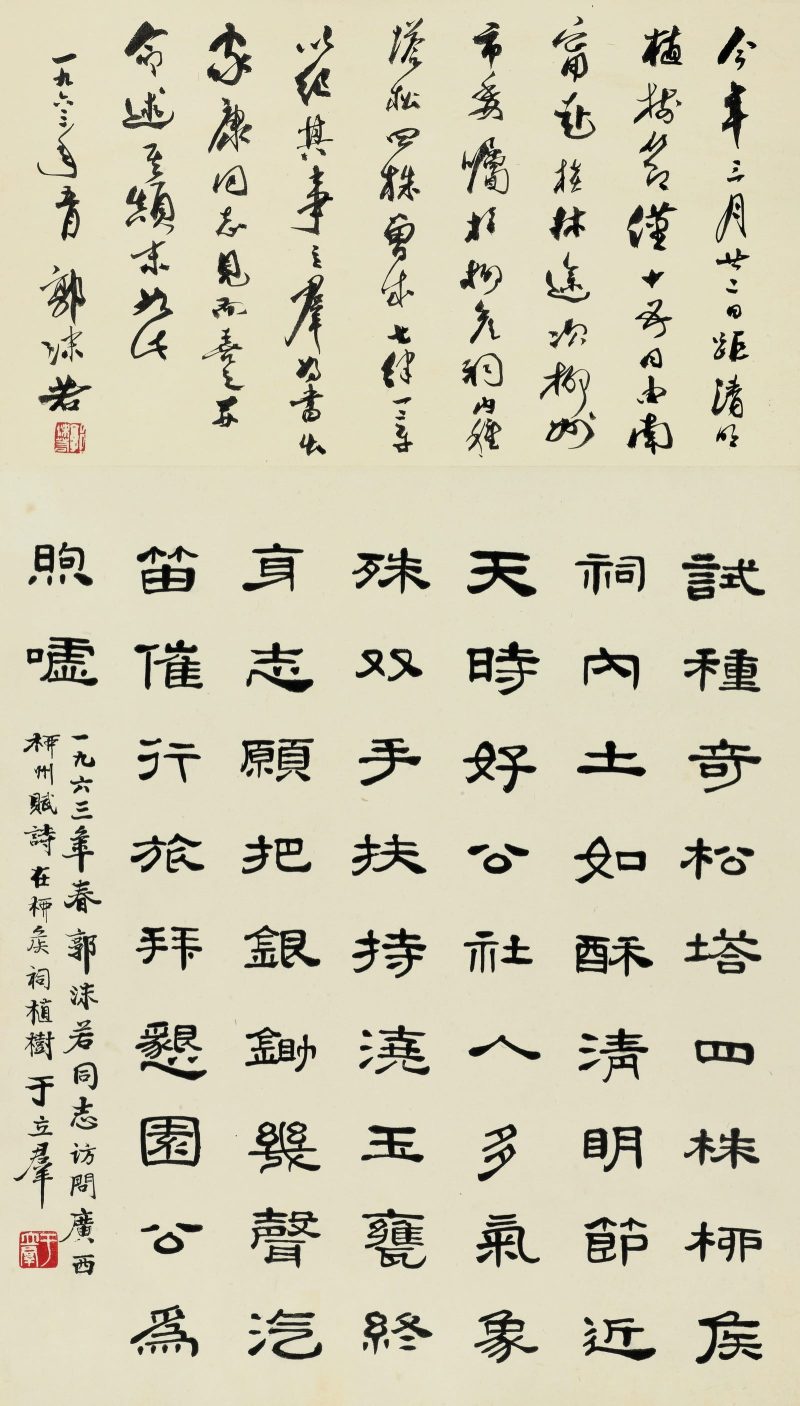 今年三月廿二日距清明
植樹節僅十五日由南
甯赴桂林途次柳州
市委囑於柳侯祠內種
塔松四株曾成七律一章
以紀其事立羣為書出
家康同志見而喜之并
命述其顛末如此
一九六三年五月 郭沫若
試種奇松塔四株柳侯
祠內土如酥清明節近
天時好公社人多氣象
殊双手扶持澆玉甕終
身志願把銀鋤幾聲汽
笛催行旅拜懇園公為
煦噓
一九六三年春郭沫若同志訪問廣西
柳州賦詩在柳侯祠植樹 于立羣